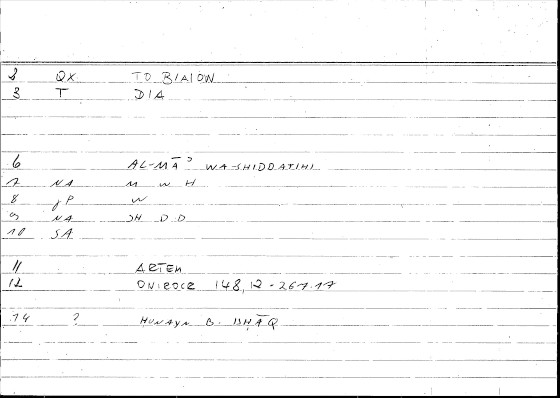 2 QX TO BIAION
3 T DIA
6 AL-MĀʾ WA-SHIDDATIHI
7 NA M W H
8 gP W
9 NA SH D D
10 SA
11 ARTEM
12 ONIROCR 148,12 - 267.17
14 ? HUNAYN B. ISḤĀQ